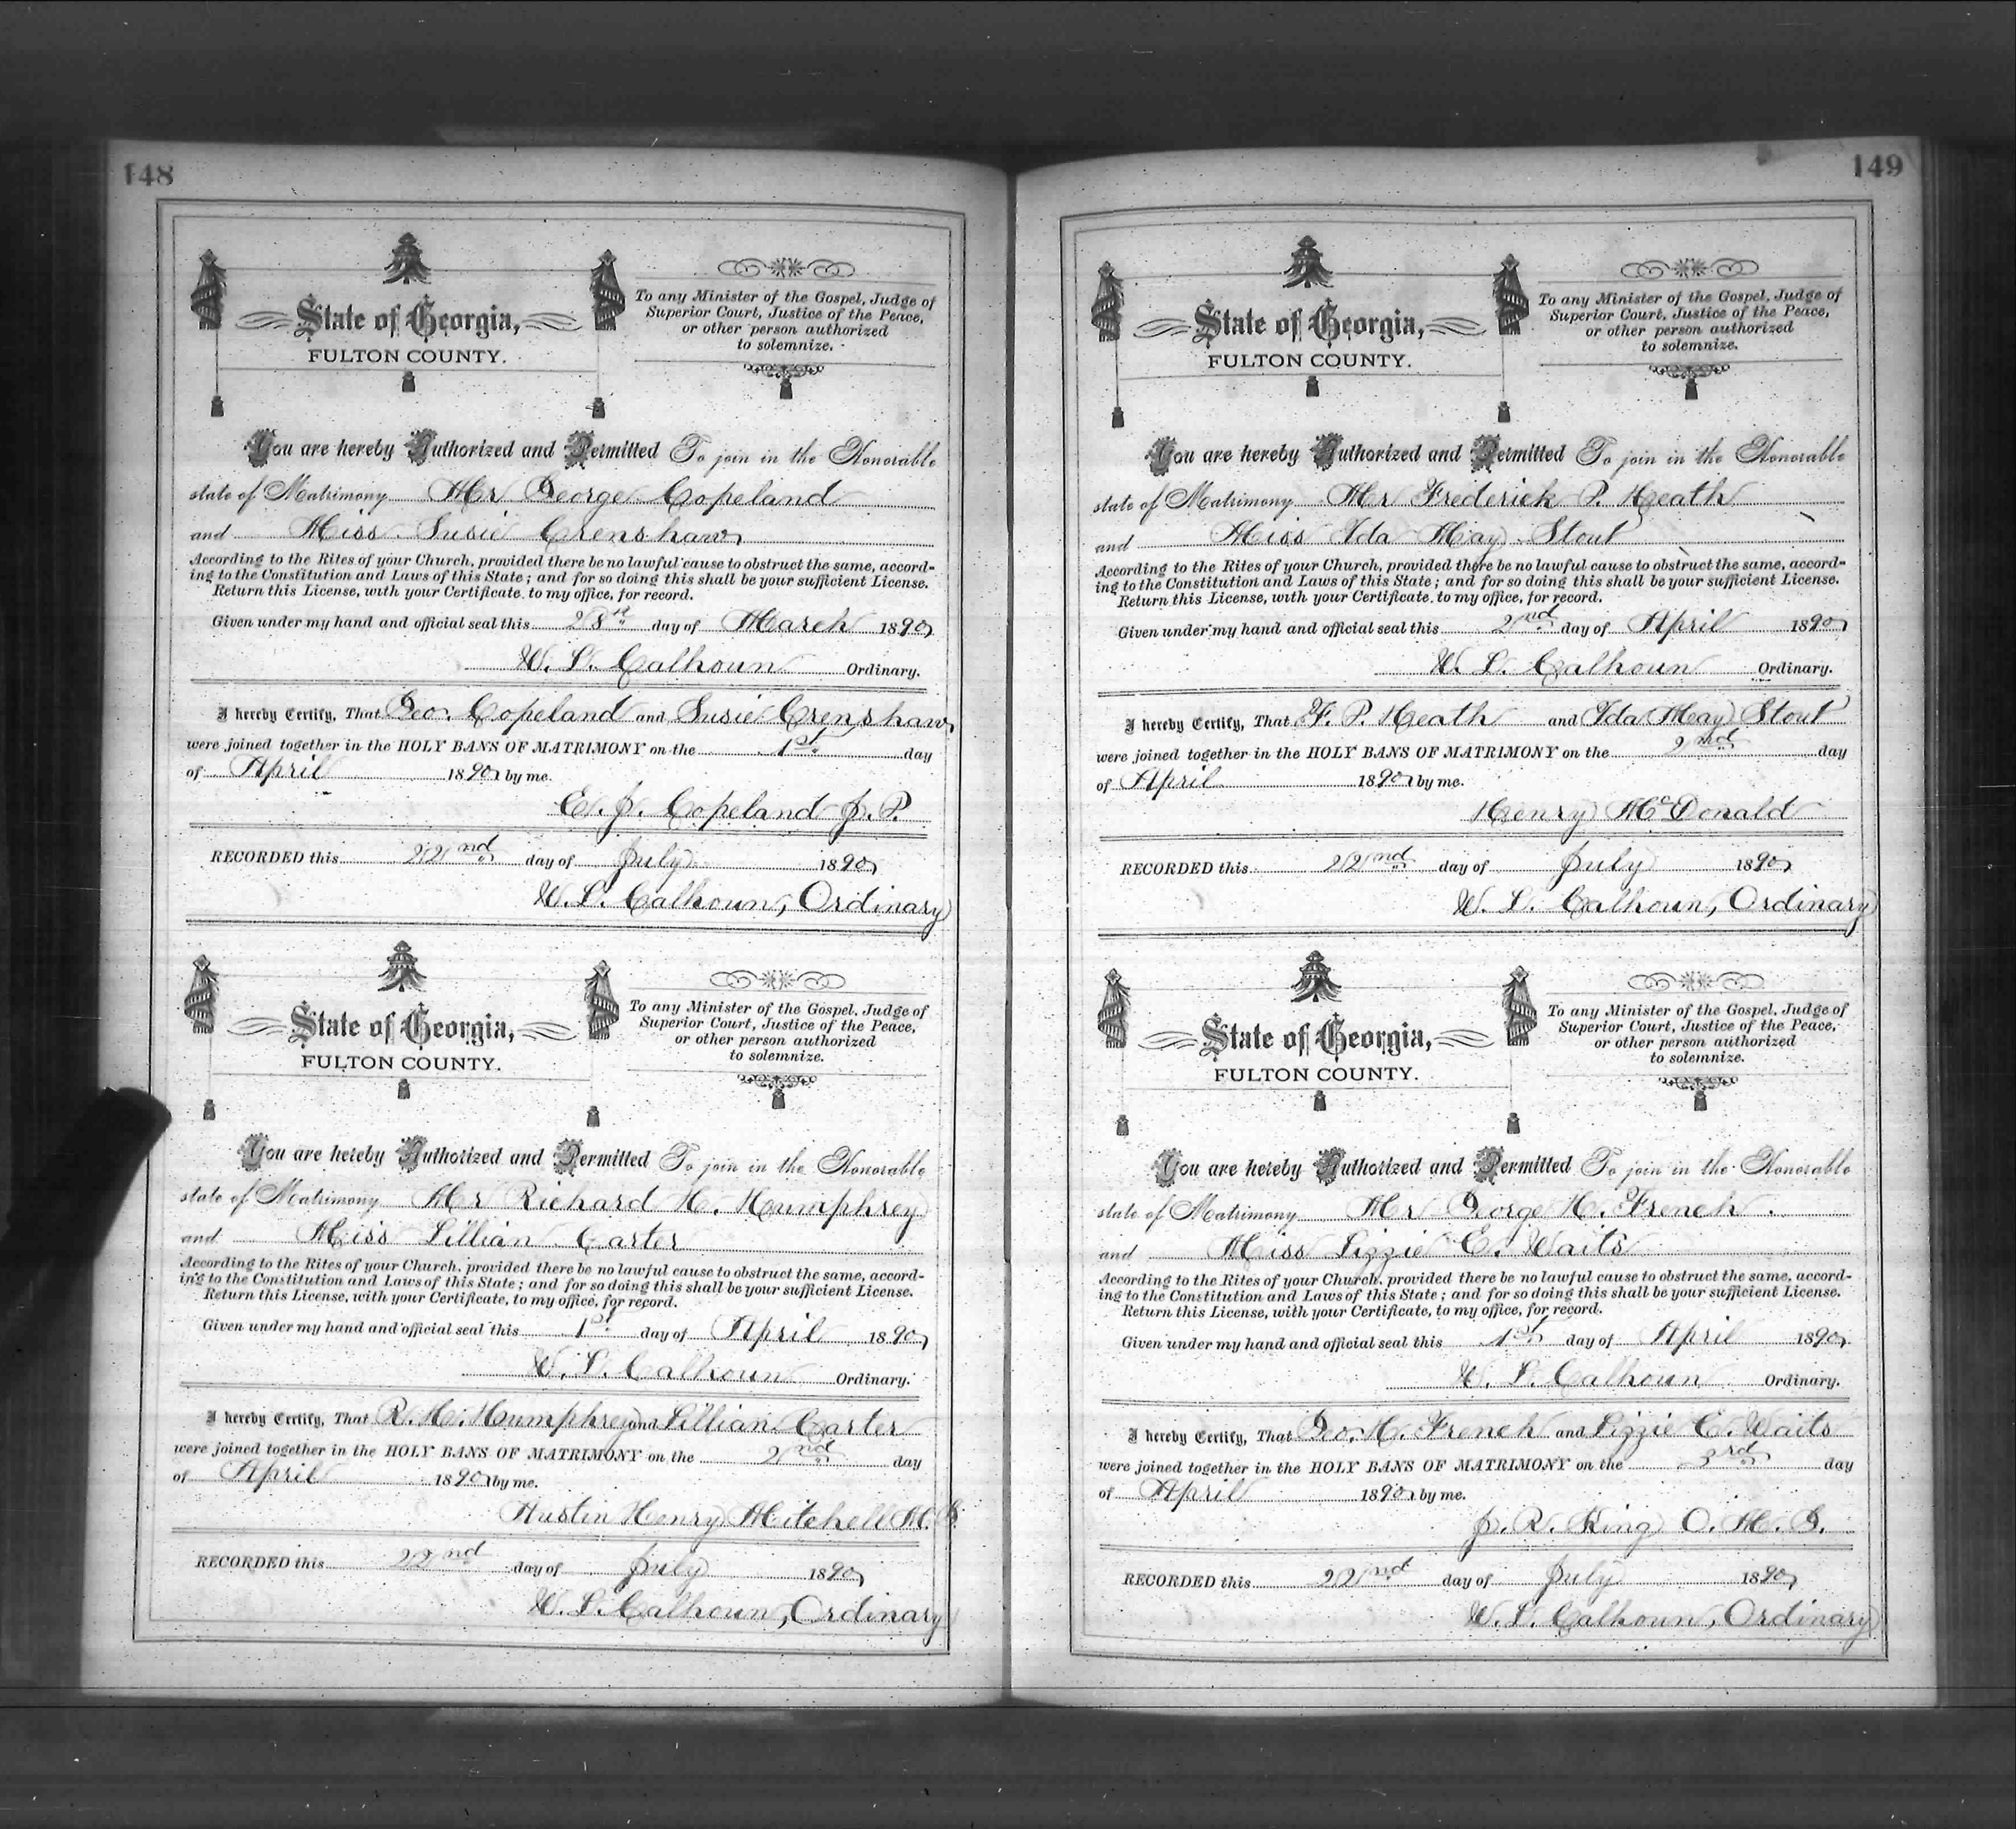 148
State of Georgia,
FULTON COUNTY.
To any Minister of the Gospel, Judge of
Superior Court, Justice of the Peace,
or other person authorized
to solemnize.
You are hereby Authorized and Permitted To join in the Honorable
state of Matrimony Mr George Copeland
and Miss Susie Crenshaw
According to the Rites of your Church, provided there be no lawful cause to obstruct the same, accord-
ing to the Constitution and Laws of this State; and for so doing this shall be your sufficient License.
Return this License, with your Certificate, to my office, for record.
Given under my hand and official seal this 28st day of March 1890
W. L. Calhoun Ordinary.
I hereby Certify, That Geo. Copeland and Susie Crenshaw
were joined together in the HOLY BANS OF MATRIMONY on the 1st day
of April 1890 by me.
E. J. Copeland J. P.
RECORDED this 22nd day of July 1890
W. L. Calhoun, Ordinary
State of Georgia,
FULTON COUNTY.
To any Minister of the Gospel, Judge of
Superior Court, Justice of the Peace,
or other person authorized
to solemnize.
You are hereby Authorized and Permitted To join in the Honorable
state of Matrimony Mr Richard H. Humphrey
and Miss Lillian Carter
According to the Rites of your Church, provided there be no lawful cause to obstruct the same, accord-
ing to the Constitution and Laws of this State; and for so doing this shall be your sufficient License.
Return this License, with your Certificate, to my office, for record.
Given under my hand and official seal this 1st day of April 1890
W. L. Calhoun Ordinary.
I hereby Certify, That R. H. Humphrey and Lillian Carter
were joined together in the HOLY BANS OF MATRIMONY on the 2nd day
of April 1890 by me.
Austin Henry Mitchell M. G.
RECORDED this 22nd day of July 1890
W. L. Calhoun, Ordinary
149
State of Georgia,
FULTON COUNTY.
To any Minister of the Gospel, Judge of
Superior Court, Justice of the Peace,
or other person authorized
to solemnize.
You are hereby Authorized and Permitted To join in the Honorable
state of Matrimony Mr Frederick P. Heath
and Miss Ida May Stout
According to the Rites of your Church, provided there be no lawful cause to obstruct the same, accord-
ing to the Constitution and Laws of this State; and for so doing this shall be your sufficient License.
Return this License, with your Certificate, to my office, for record.
Given under my hand and official seal this 2nd day of April 1890
W. L. Calhoun Ordinary.
I hereby Certify, That F. P. Heath and Ida May Stout
were joined together in the HOLY BANS OF MATRIMONY on the 2nd day
of April 1890 by me.
Henry McDonald
RECORDED this 22nd day of July 1890
W. L. Calhoun, Ordinary
State of Georgia,
FULTON COUNTY.
To any Minister of the Gospel, Judge of
Superior Court, Justice of the Peace,
or other person authorized
to solemnize.
You are hereby Authorized and Permitted To join in the Honorable
state of Matrimony Mr George H. French
and Miss Lizzie E. Waits
According to the Rites of your Church, provided there be no lawful cause to obstruct the same, accord-
ing to the Constitution and Laws of this State; and for so doing this shall be your sufficient License.
Return this License, with your Certificate, to my office, for record.
Given under my hand and official seal this 1st day of April 1890
W. L. Calhoun Ordinary.
I hereby Certify, That Geo. H. French and Lizzie E. Waits
were joined together in the HOLY BANS OF MATRIMONY on the 3rd day
of April 1890 by me.
J. R. King O. M. G.
RECORDED this 22nd day of July 1890
W. L. Calhoun, Ordinary